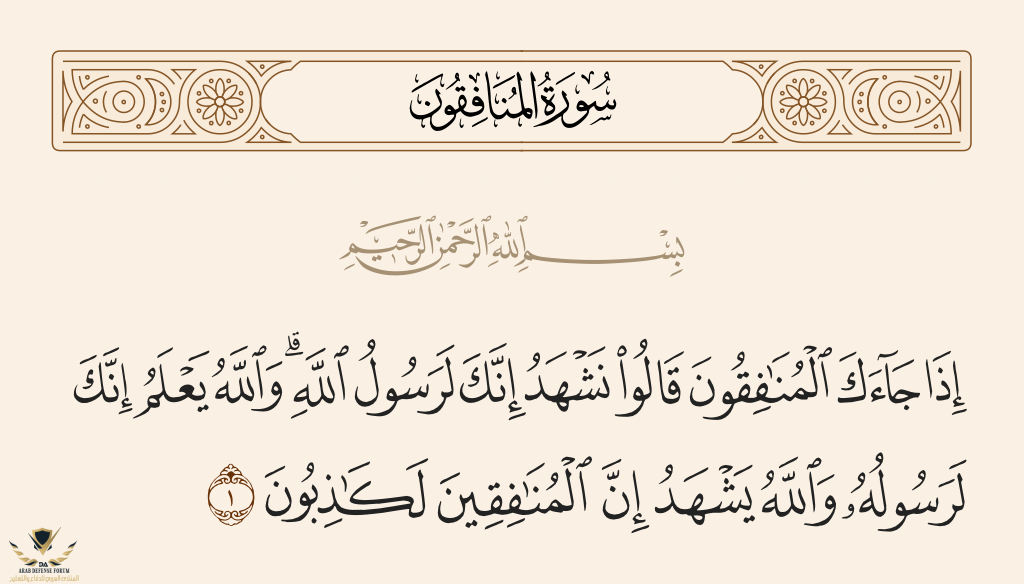 سُورَةُ الْمُنَافِقُونَ
بِسْمِ ٱللَّهِ ٱلرَّحْمَٰنِ ٱلرَّحِيمِ
إِذَا جَآءَكَ ٱلْمُنَٰفِقُونَ قَالُوا۟ نَشْهَدُ إِنَّكَ لَرَسُولُ ٱللَّهِ ۗ وَٱللَّهُ يَعْلَمُ إِنَّكَ
لَرَسُولُهُۥ وَٱللَّهُ يَشْهَدُ إِنَّ ٱلْمُنَٰفِقِينَ لَكَٰذِبُونَ ١
DA
ARAB DEFENSE FORUM
المنتدى العربي للدفاع والتسليح